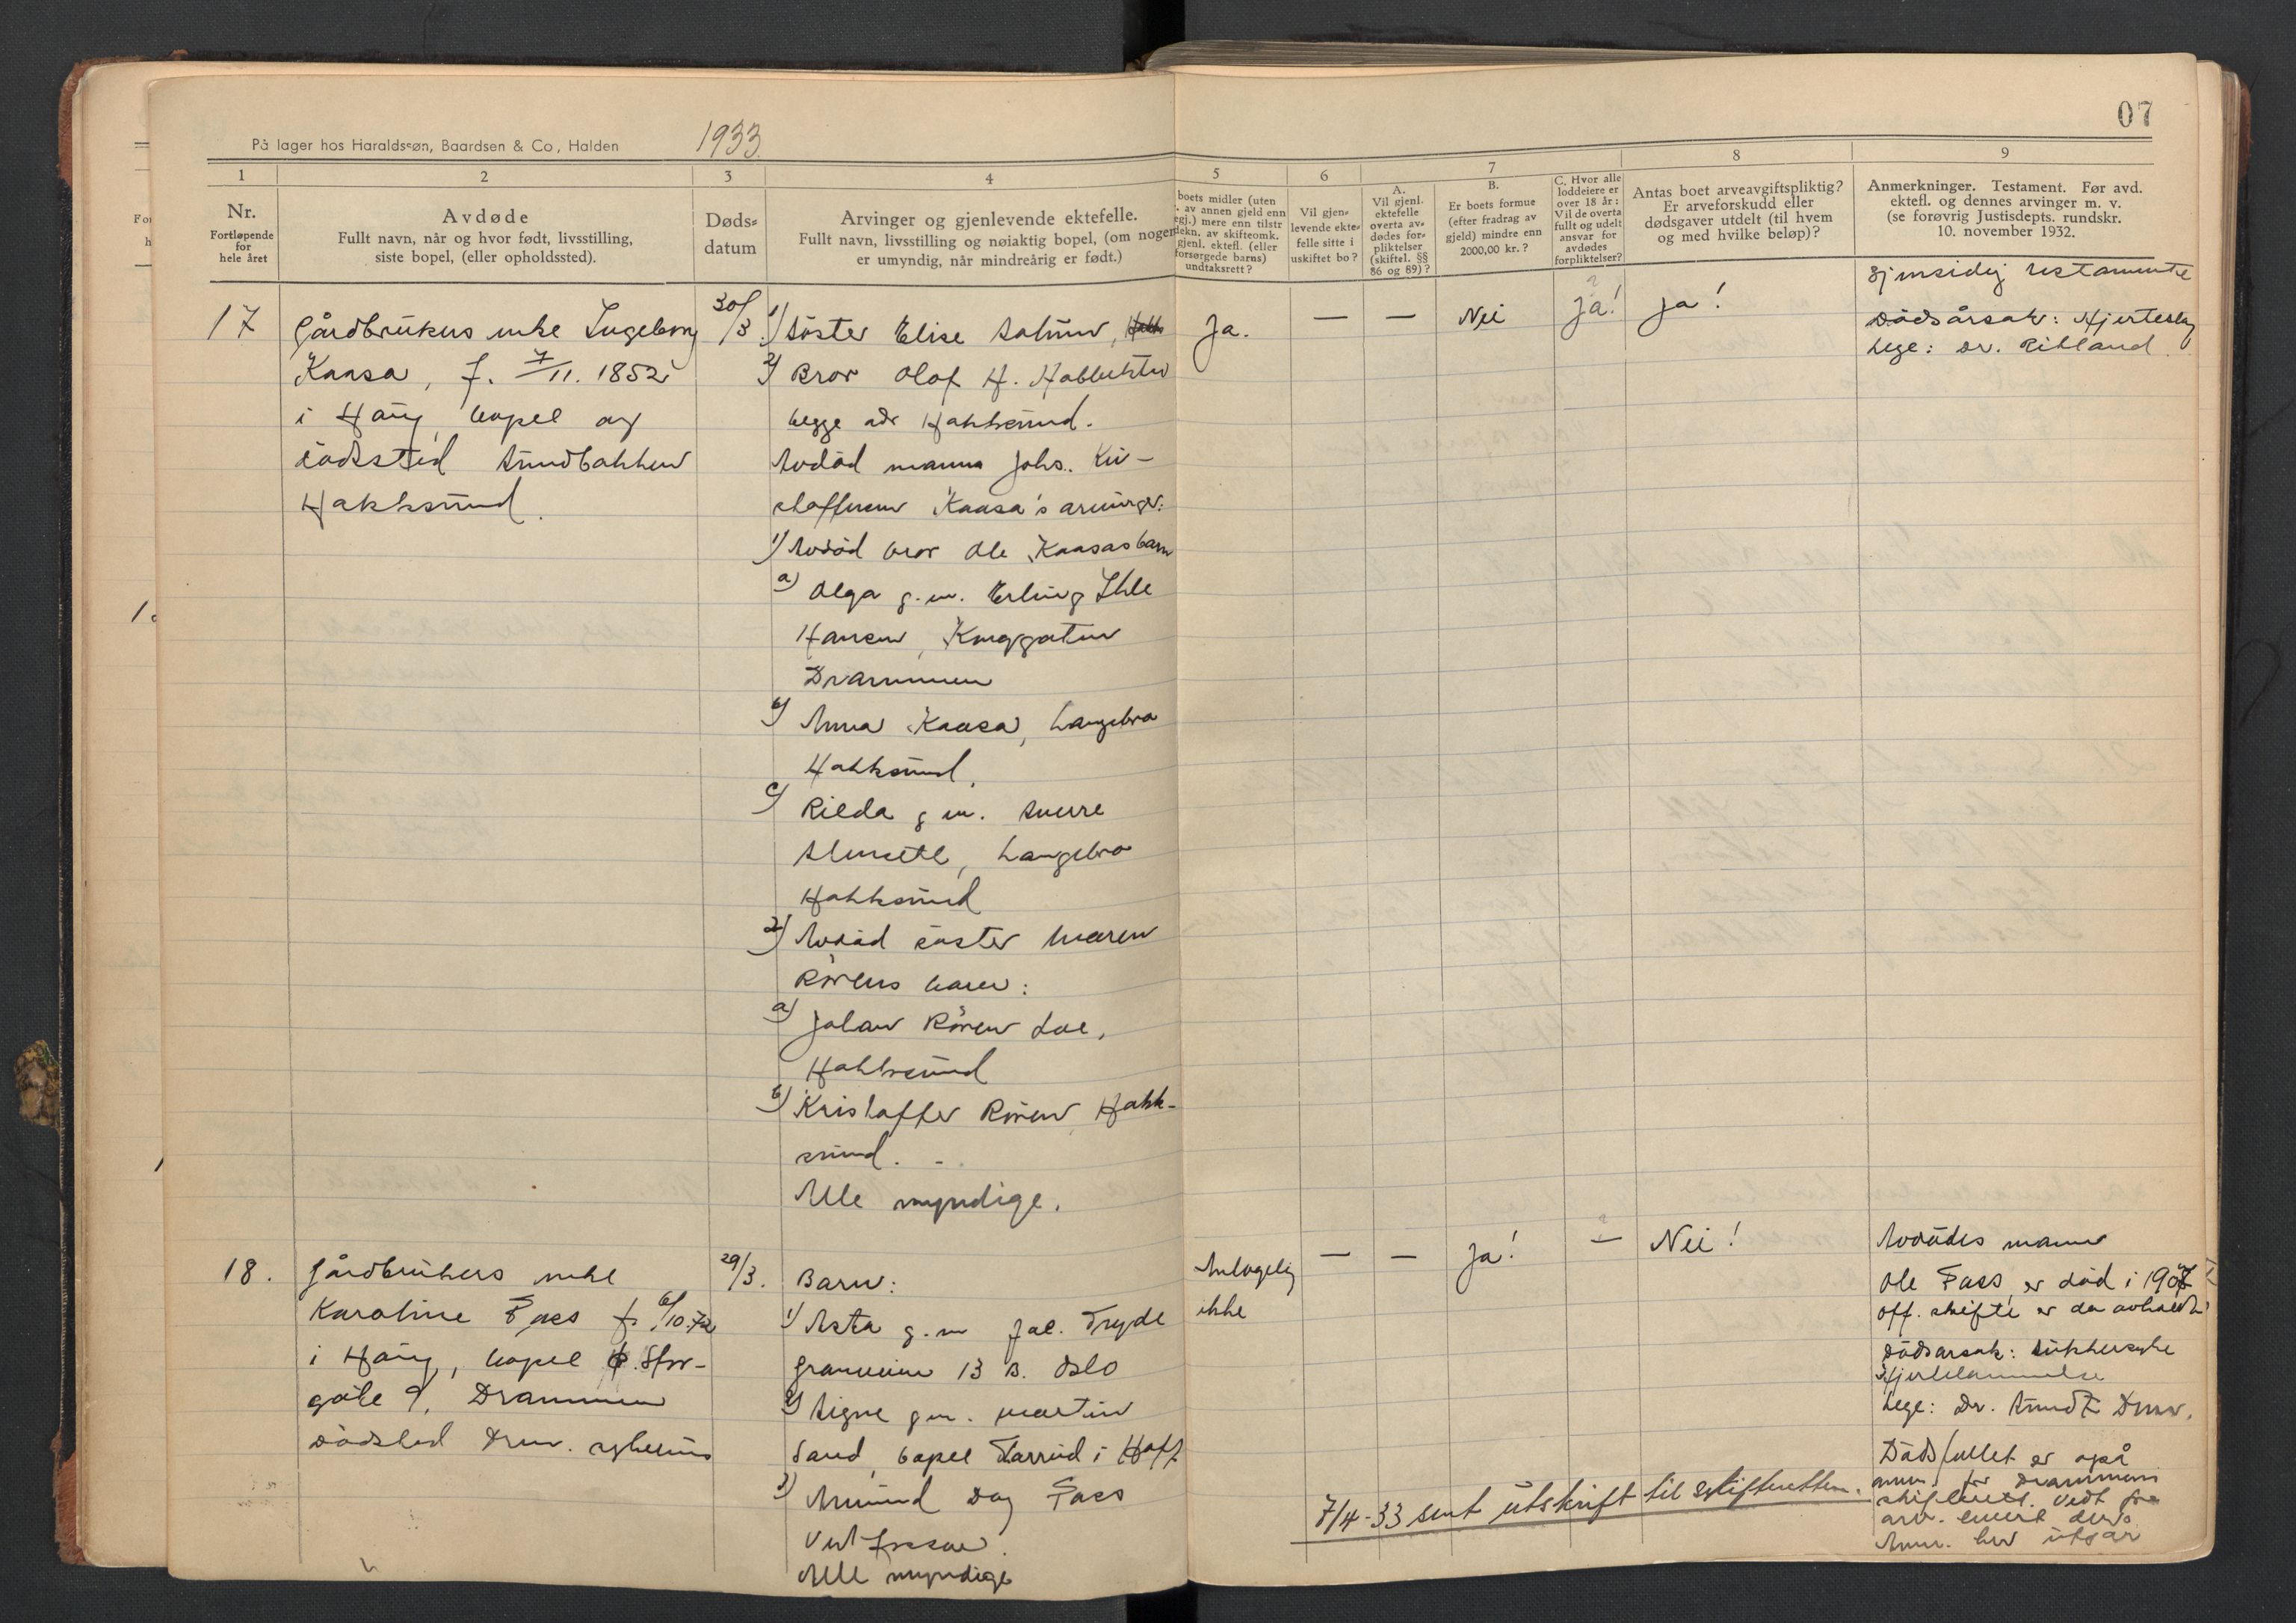 07
På lager hos Haraldssøn, Baardsen & Co, Halden
1933.
1
2
3
4
5
6
7
8
9
Nr.
Fortløpende
for
hele året
Avdøde
Fullt navn, når og hvor født, livsstilling,
siste bopel, (eller opholdssted).
Døds-
datum
Arvinger og gjenlevende ektefelle.
Fullt navn, livsstilling og nøiaktig bopel, (om nogen
er umyndig, når mindreårig er født.)
boets midler (uten
av annen gjeld enn
egj.) mere enn tilstr
dekn. av skifteomk.
gjenl. ektefl. (eller
forsørgede barns)
undtaksrett?
Vil gjen-
levende ekte-
felle sitte i
uskiftet bo?
A.
Vil gjenl.
ektefelle
overta av-
dødes for-
pliktelser
(skiftel. §§
86 og 89)?
B.
Er boets formue
(efter fradrag av
gjeld) mindre enn
2000,00 kr.?
C. Hvor alle
loddeiere er
over 18 år:
Vil de overta
fullt og udelt
ansvar for
avdødes
forpliktelser?
Antas boet arveavgiftspliktig?
Er arveforskudd eller
dødsgaver utdelt (til hvem
og med hvilke beløp)?
Anmerkninger. Testament. Før avd.
ektefl. og dennes arvinger m. v.
(se forøvrig Justisdepts. rundskr.
10. november 1932.
17
Gårdbrukers enke Ingeborg
Kaasa, f. 7/11. 1852
i Haug, bopel og
dødssted Sundbakken
Hokksund.
30/3.
1) Søster Elise Solum,
2) Bror Olof H.
begge adr Hokksund.
Avdød manns Johs. Kri-
stoffersen Kaasa's arvinger:
1) Avdød bror Ole Kaasas barn
a) Olga g.m. Erling Ihle
Hansen, Konggaten
Drammen
b) Anna Kaasa, Langebro
Hokksund.
c) Rilda g m. Sverre
Langebro
Hokksund
2) Avdød søster Maren
Rørens barn:
a) Johan Røren Loe,
Hokksund
b) Kristoffer Røren, Hokk-
sund. -
Alle myndige.
Ja.
—
—
Nei
Ja!
Ja!
Gjensidig testamente
Dødsårsak: Hjerteslag
Lege: Dr.
18.
Gårdbrukers enke
Karoline Fass f. 6/10.72
i Haug, bopel
gate 9, Drammen
Dødssted Drm. sykehus
29/3.
Barn:
1) Asta g.m Jac. Tryde
Granveien 13 B. Oslo
2) Signe g m. Martin
Sand, bopel Tarrud i Hoff
3) Amund Dag Fass
Vestfossen.
Alle myndige
Antagelig
ikke
—
—
Ja!
—
Nei!
Avdødes mann
Ole Fass, er død i 1907
Off. skifte er da avholdt
Dødsårsak: Sukkersyke
Hjertelammelse
Lege: Dr. Sundt Drm.
Dødsfallet er også
anm. for Drammens
skifterett. Vedt fra
arv. levert der.
Anm. her utgår
7/4-33 sent utskrift til skifteretten.